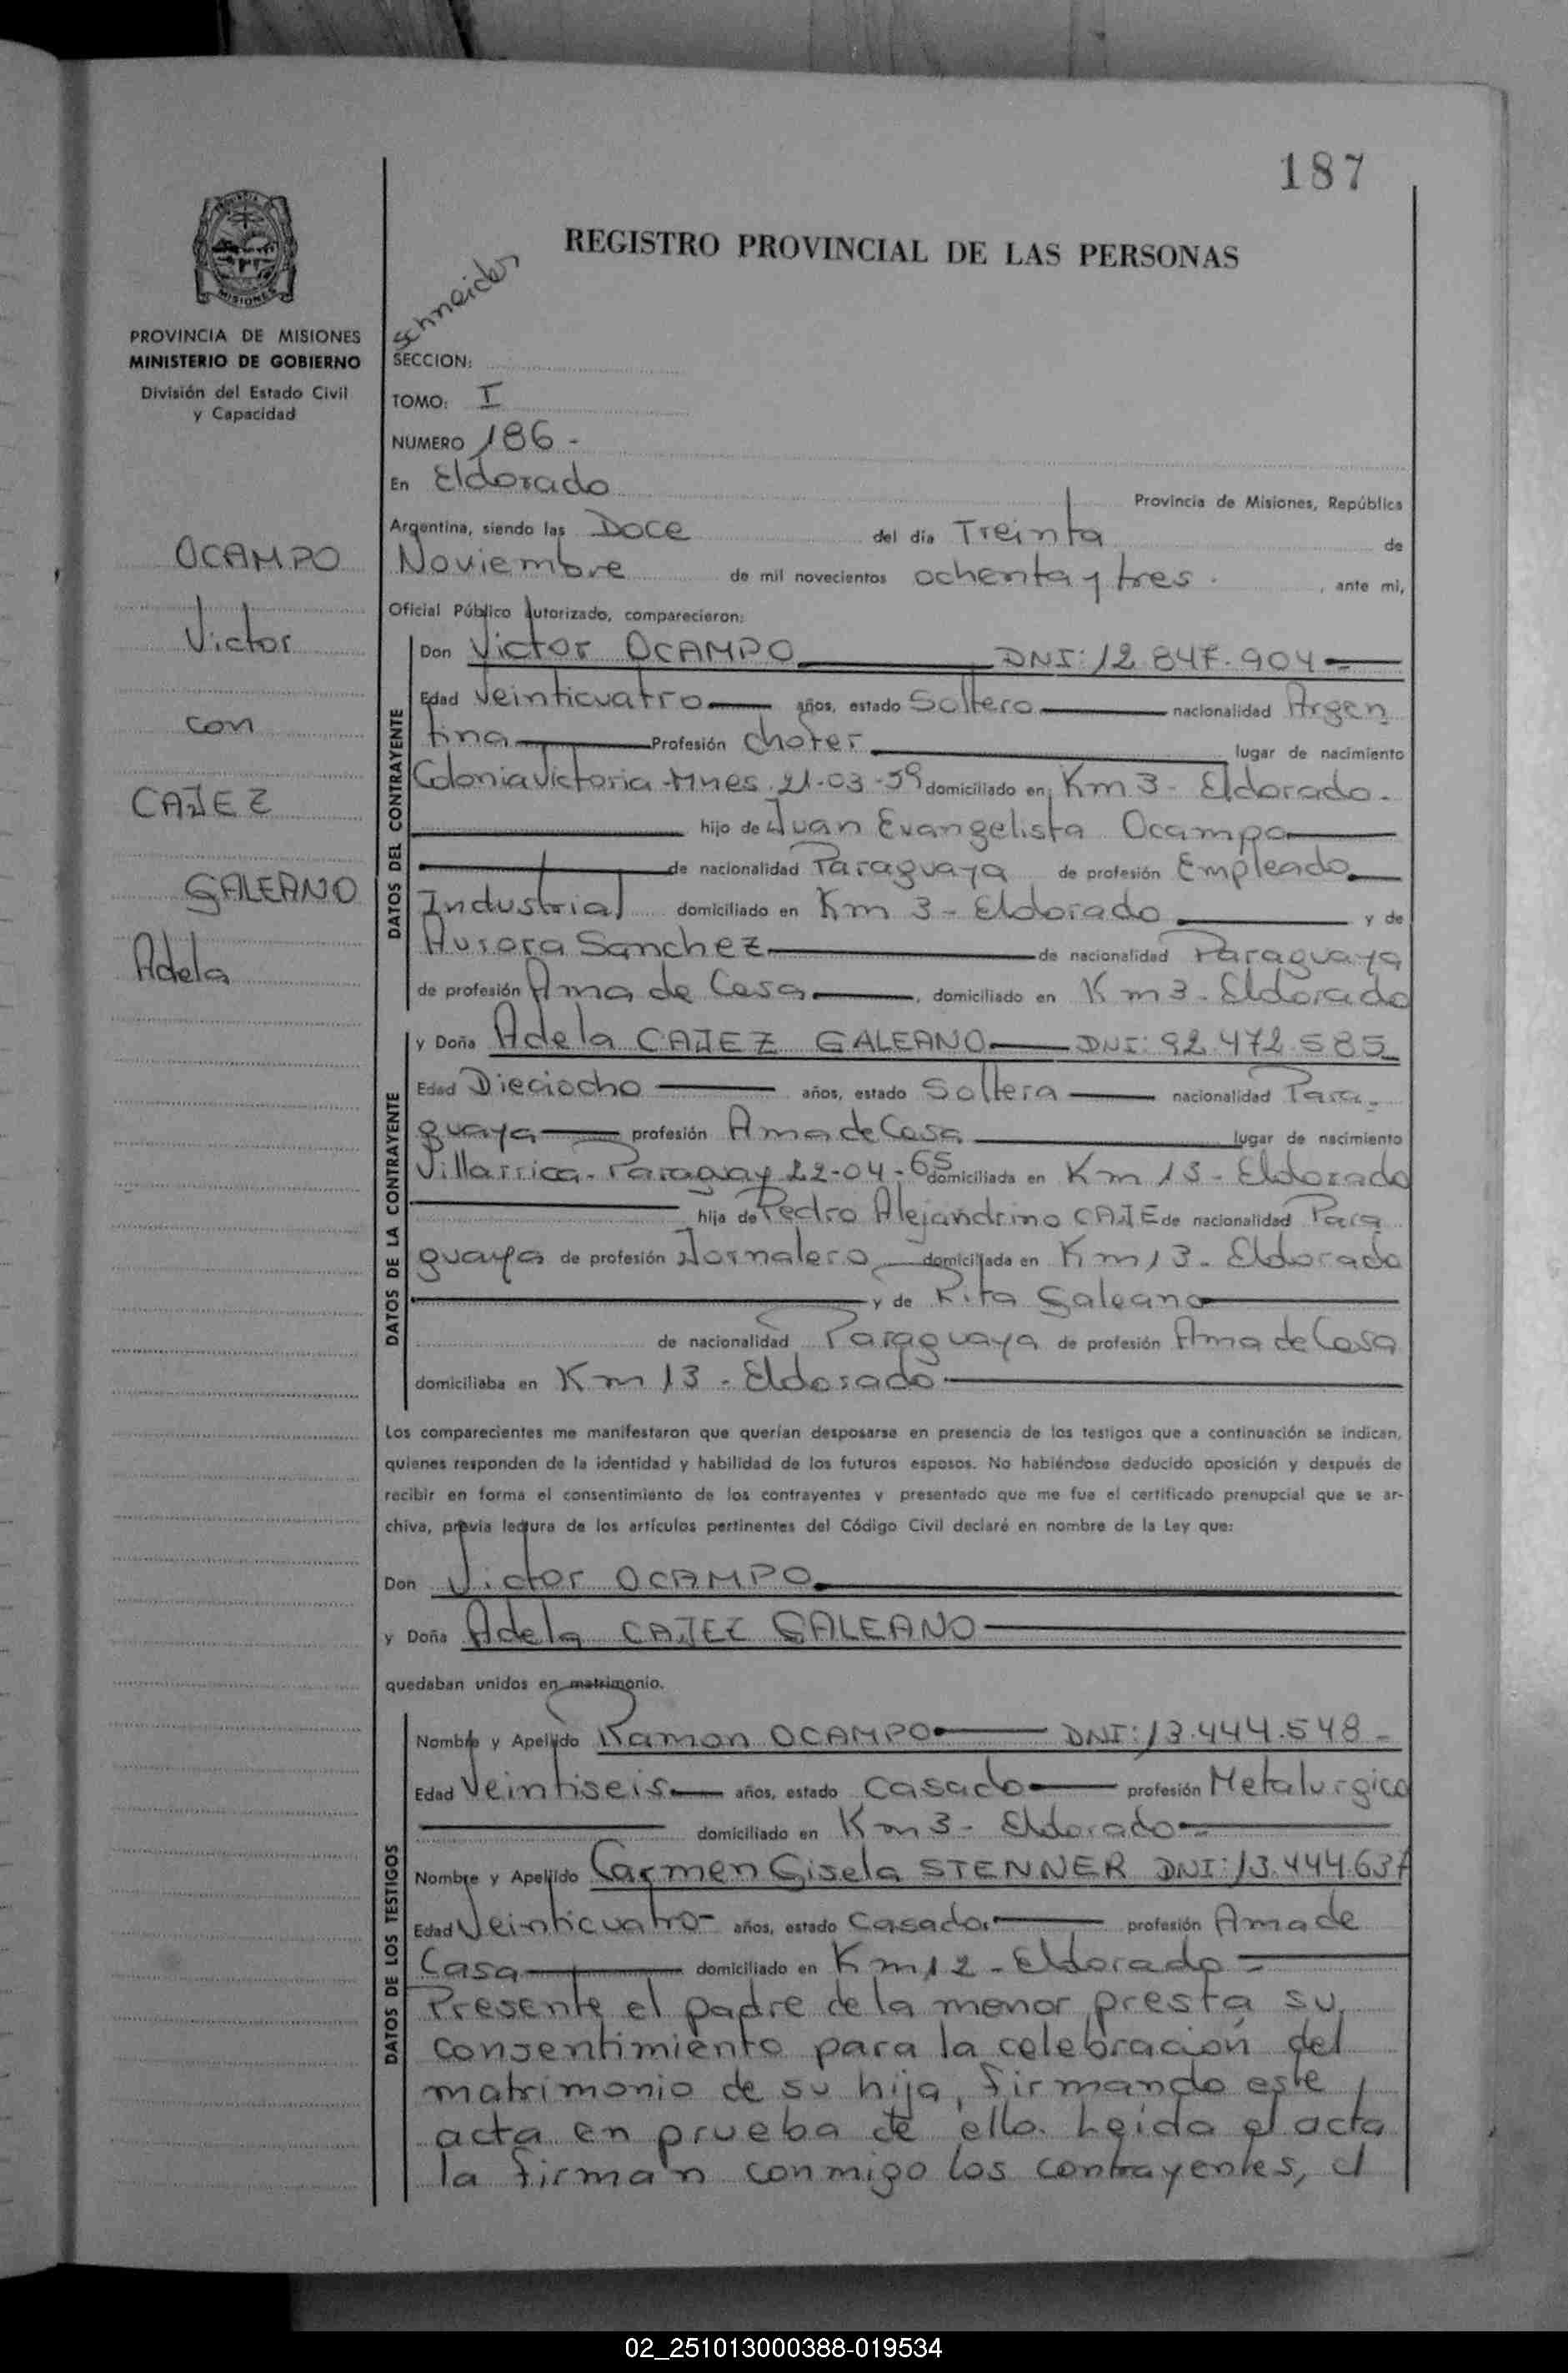 187
REGISTRO PROVINCIAL DE LAS PERSONAS
PROVINCIA DE MISIONES
MINISTERIO DE GOBIERNO
División del Estado Civil
y Capacidad
OCAMPO
Victor
con
CAJEZ
GALEANO
Adela
Schneider
SECCION:
TOMO: I
NUMERO 186 -
En Eldorado Provincia de Misiones, República
Argentina, siendo las Doce del día Treinta de
Noviembre de mil novecientos ochenta y tres. , ante mi,
Oficial Público autorizado, comparecieron:
DATOS DEL CONTRAYENTE
Don Victor OCAMPO DNI: 12.847.904 -
Edad Veinticuatro años, estado Soltero nacionalidad Argen
tina Profesión Chofer lugar de nacimiento
Colonia Victoria - Mnes. 21-03-59 domiciliado en Km 3 - Eldorado -
hijo de Juan Evangelista Ocampo
de nacionalidad Paraguaya de profesión Empleado
Industrial domiciliado en Km 3 - Eldorado y de
Aurora Sanchez de nacionalidad Paraguaya
de profesión Ama de Casa , domiciliado en Km 3 - Eldorado
DATOS DE LA CONTRAYENTE
y Doña Adela CAJEZ GALEANO DNI: 92.472.585
Edad Dieciocho años, estado Soltera nacionalidad Para-
guaya profesión Ama de Casa lugar de nacimiento
Villarrica - Paraguay 22-04-65 domiciliada en Km 13 - Eldorado
hija de Pedro Alejandrino CAJE de nacionalidad Para
guaya de profesión Jornalero domiciliada en Km 13 - Eldorado
y de Rita Galeano
de nacionalidad Paraguaya de profesión Ama de Casa
domiciliaba en Km 13 - Eldorado
Los comparecientes me manifestaron que querían desposarse en presencia de los testigos que a continuación se indican,
quienes responden de la identidad y habilidad de los futuros esposos. No habiéndose deducido oposición y después de
recibir en forma el consentimiento de los contrayentes y presentado que me fue el certificado prenupcial que se ar-
chiva, previa lectura de los artículos pertinentes del Código Civil declaré en nombre de la Ley que:
Don Victor OCAMPO
y Doña Adela CAJEZ GALEANO
quedaban unidos en matrimonio.
DATOS DE LOS TESTIGOS
Nombre y Apellido Ramon OCAMPO DNI: 13.444.548 -
Edad Veintiseis años, estado Casado profesión Metalurgico
domiciliado en Km 3 - Eldorado -
Nombre y Apellido Carmen Gisela STENNER DNI: 13.444.637
Edad Veinticuatro años, estado Casada profesión Ama de
Casa domiciliado en Km 12 - Eldorado -
Presente el padre de la menor presta su
consentimiento para la celebración del
matrimonio de su hija, firmando este
acta en prueba de ello. Leida el acta
la firman conmigo los contrayentes, el
02_251013000388-019534